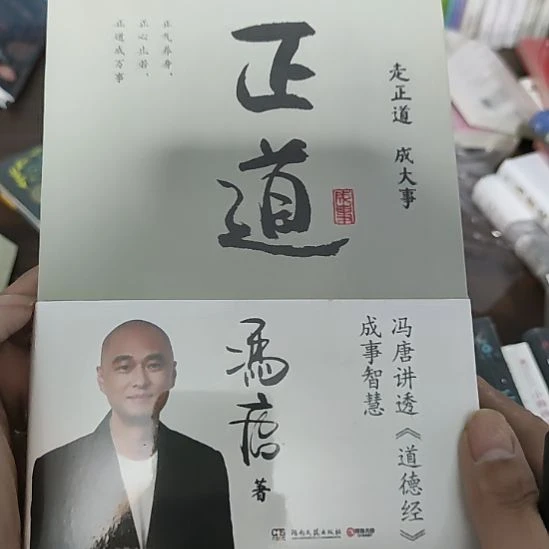 正道
走正道 成大事
正气养身，
正心止若，
正道成万事
成事
冯唐 著
冯唐讲透《道德经》
成事智慧
湖南文艺出版社
博集天卷